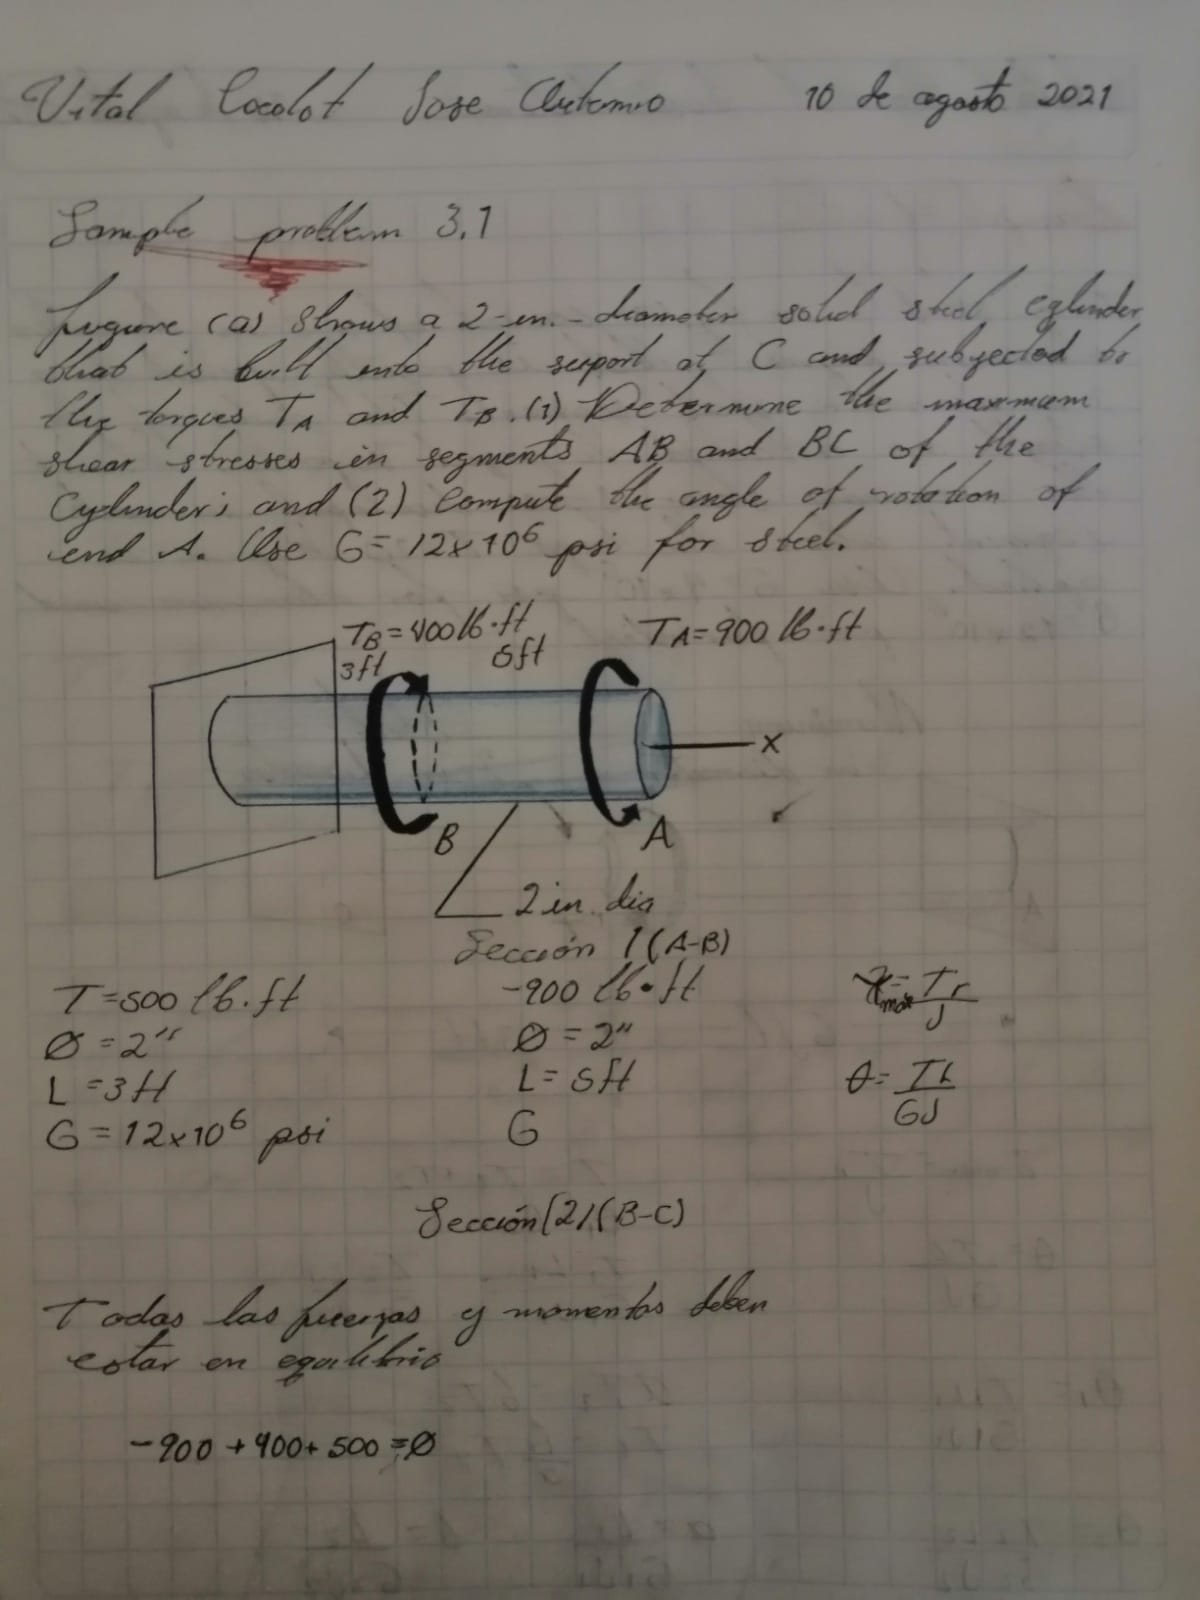 Vital Cocolot Jose Artemio 10 de agosto 2021
Sample problem 3.1
figure (a) shows a 2-in.-diameter solid steel cylinder
that is built into the suport at C and subjected to
the torques TA and TB. (1) Determine the maximum
shear stresses in segments AB and BC of the
Cylinder; and (2) Compute the angle of rotation of
end A. Use G= 12x10⁶ psi for steel.
TB=400lb·ft TA=900 lb·ft
3ft 5ft
x
B A
2in. dia
Sección 1(A-B)
T=500 lb.ft -900 lb•ft τmax=Tr/J
Ø=2" Ø=2"
L=3ft L=5ft θ=TL/GJ
G=12x10⁶ psi G
Sección(2)(B-C)
Todas las fuerzas y momentos deben
estar en equilibrio
-900+400+500=Ø